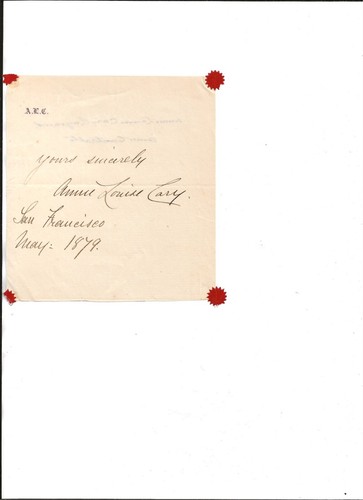 A.L.C.
Yours sincerely
Annie Louise Cary.
San Francisco
May: 1879.